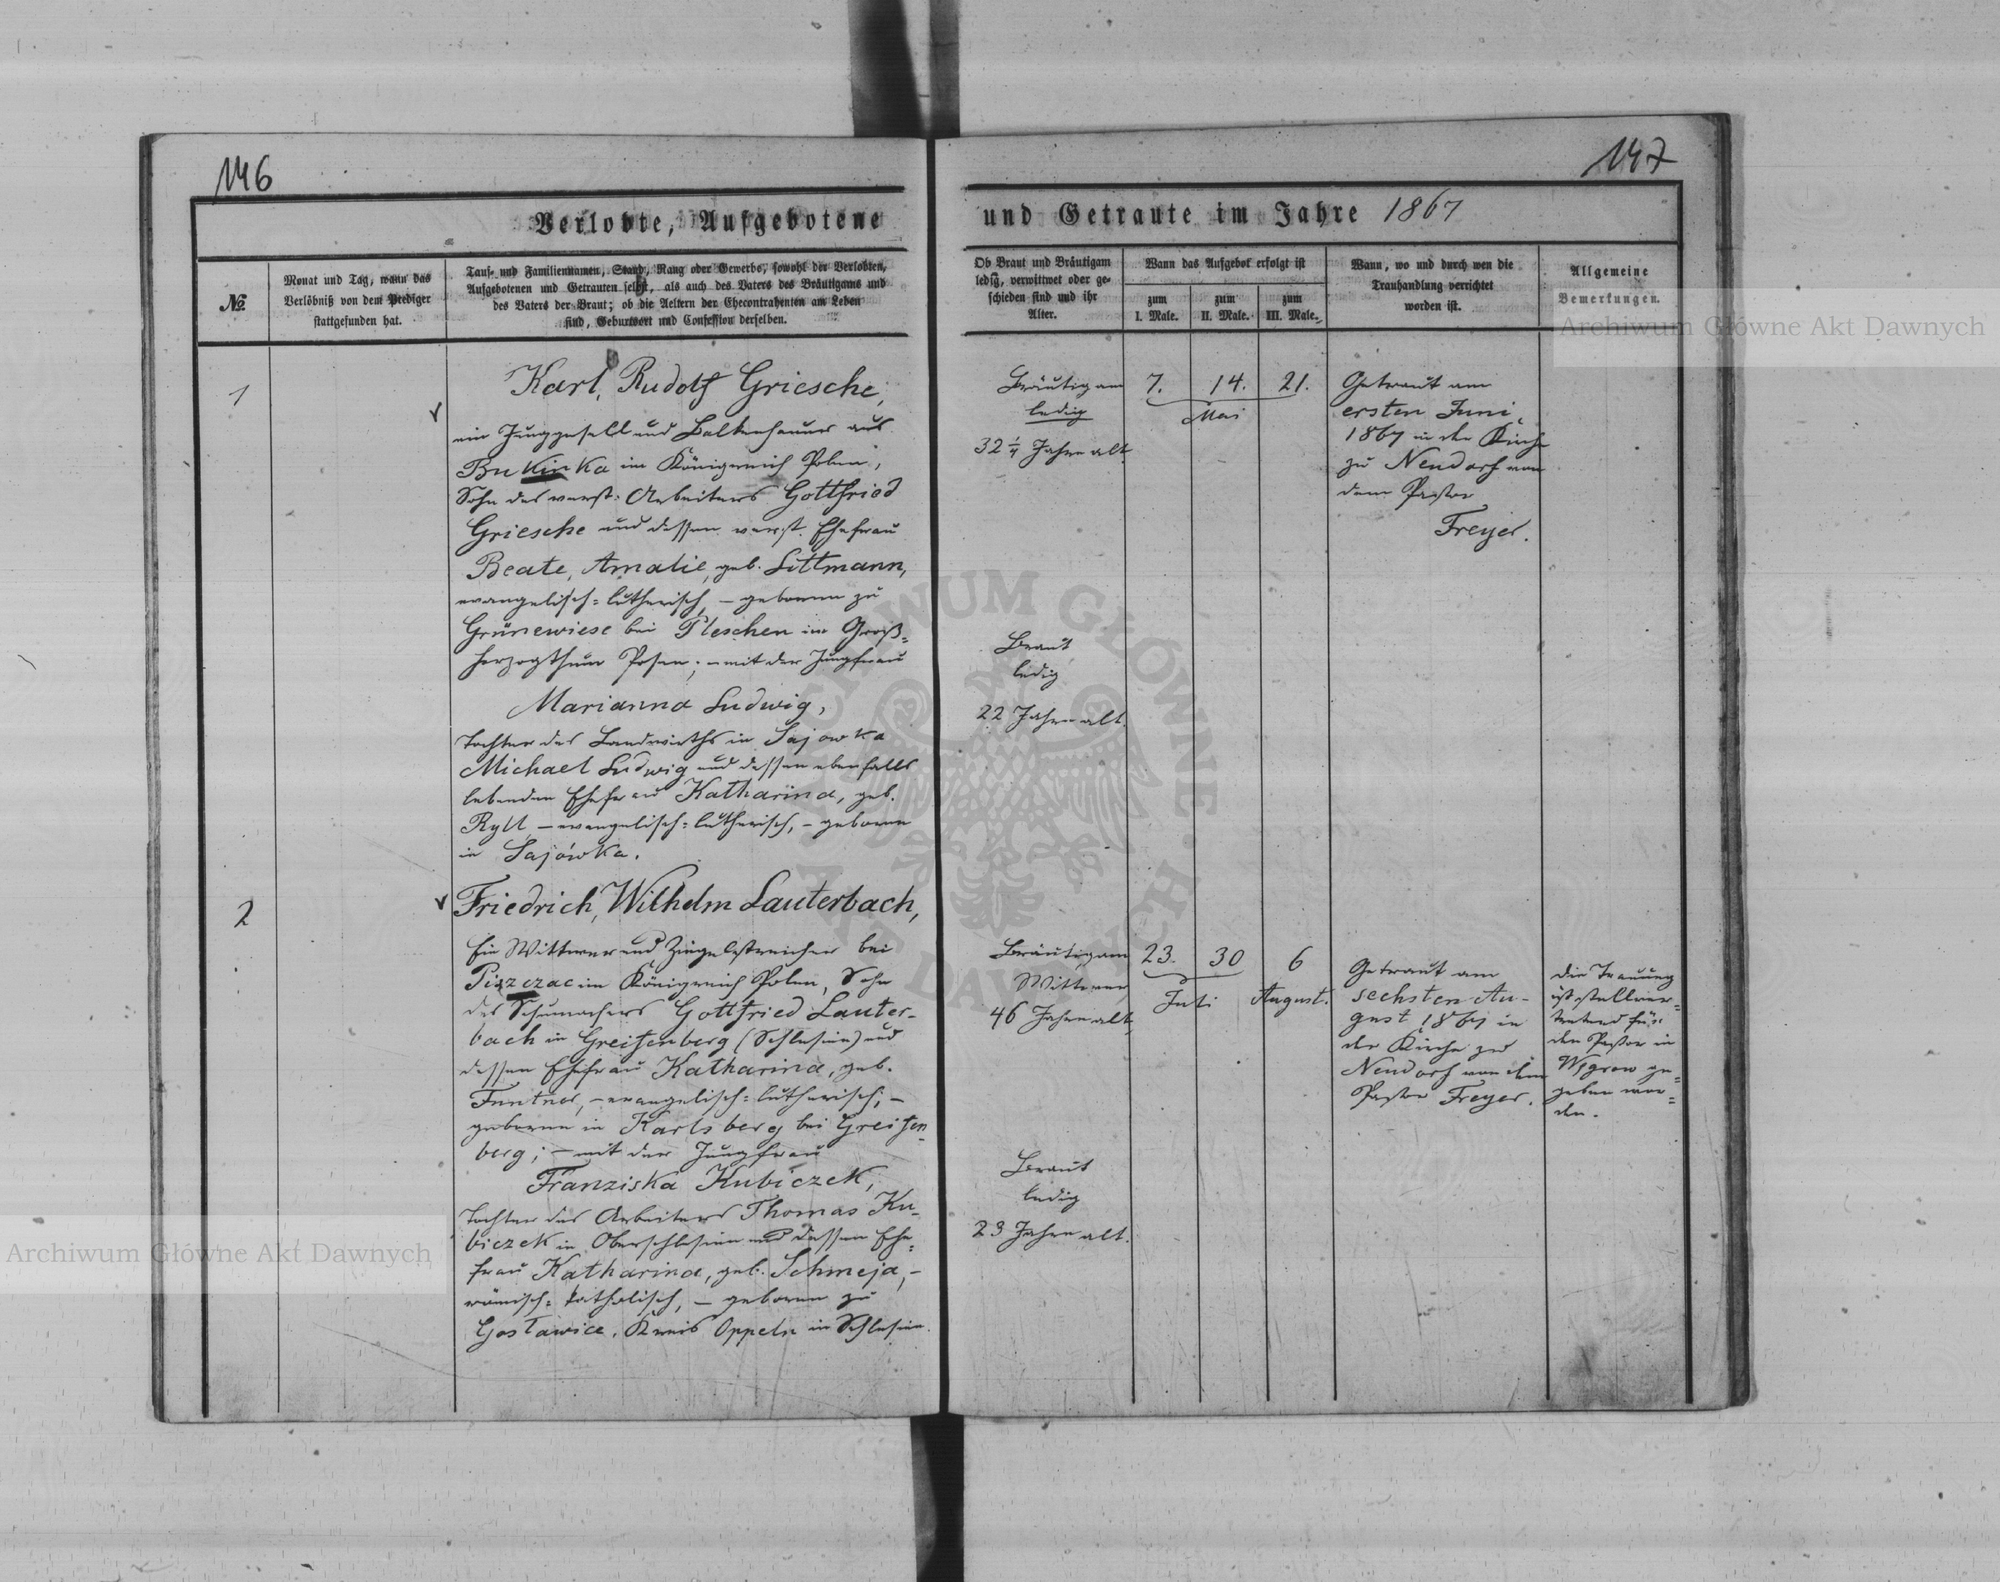 146
147
Verlobte, Aufgebotene
und Getraute im Jahre 1867
№
Monat und Tag, wann das
Verlöbniß von dem Prediger
stattgefunden hat.
Tauf- und Familiennamen, Stand, Rang oder Gewerbe, sowohl der Verlobten,
Aufgebotenen und Getrauten selbst, als auch des Vaters des Bräutigams und
des Vaters der Braut; ob die Aeltern der Ehecontrahenten am Leben
sind, Geburtsort und Confession derselben.
Ob Braut und Bräutigam
ledig, verwittwet oder ge-
schieden sind und ihr
Alter.
Wann das Aufgebot erfolgt ist
zum
I. Male.
zum
II. Male.
zum
III. Male.
Wann, wo und durch wen die
Trauhandlung verrichtet
worden ist.
Allgemeine
Bemerkungen.
1
Karl, Rudolf Griesche,
ein Junggesell und Balkenhauer aus
Bukinka im Königreich Polen,
Sohn des verst. Arbeiters Gottfried
Griesche und dessen verst. Ehefrau
Beate, Amalie, geb. Littmann,
evangelisch=lutherisch, – geboren zu
Grünewiese bei Pleschen im Groß=
herzogthum Posen; – mit der Jungfrau
Marianna Ludwig,
Tochter des Landwirths in Sajowka
Michael Ludwig und dessen ebenfalls
lebenden Ehefrau Katharina, geb.
Ryll, – evangelisch=lutherisch, – geboren
in Sajówka.
Bräutigam
ledig
32 1/4 Jahre alt.
Braut
ledig
22 Jahre alt.
7. 14. 21.
Mai
Getraut am
ersten Juni,
1867 in der Kirche
zu Neudorf von
dem Pastor
Freyer.
2
Friedrich, Wilhelm Lauterbach,
Ein Wittwer und Ziegelstreicher bei
Piszczac im Königreich Polen, Sohn
des Schumachers Gottfried Lauter-
bach in Greifenberg (Schlesien) und
dessen Ehefrau Katharina, geb.
evangelisch=lutherisch; –
geboren in Karlsberg bei Greifen-
berg; – mit der Jungfrau
Franziska Kubiczek,
Tochter des Arbeiters Thomas Ku-
biczek in Oberschlesien und dessen Ehe=
frau Katharina, geb. Schmeja, –
römisch=katholisch, – geboren zu
Gosławice, Kreis Oppeln in Schlesien.
Bräutigam
Wittwer
46 Jahre alt,
Braut
ledig
23 Jahre alt.
23. 30 6
Juli August.
Getraut am
sechsten Au-
gust 1867 in
der Kirche zu
Neudorf von dem
Pastor Freyer.
Die Trauung
ist stellver=
tretend für
den Pastor in
Węgrow ge=
geben wor=
den.
Archiwum Główne Akt Dawnych
Archiwum Główne Akt Dawnych
ARCHIWUM GŁÓWNE AKT DAWNYCH